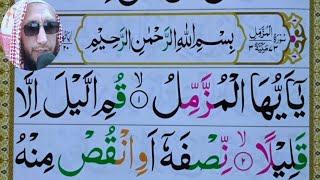 بِسْمِ اللهِ الرَّحْمٰنِ الرَّحِيْمِ
يٰۤاَيُّهَا الْمُزَّمِّلُ ۙ﴿۱﴾ قُمِ الَّيْلَ اِلَّا
قَلِيْلًا ۙ﴿۲﴾ نِّصْفَهٗۤ اَوِ انْقُصْ مِنْهُ